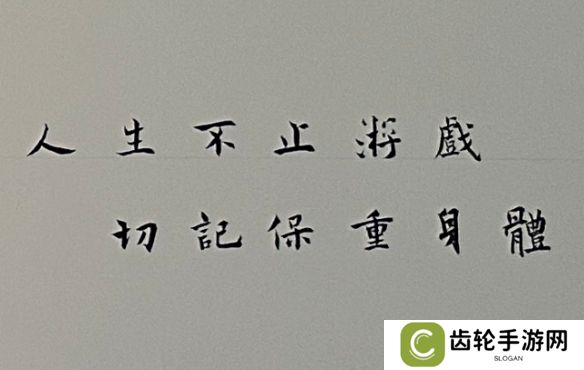 人生不止游戲
切記保重身體
齿轮手游网
SLOGAN